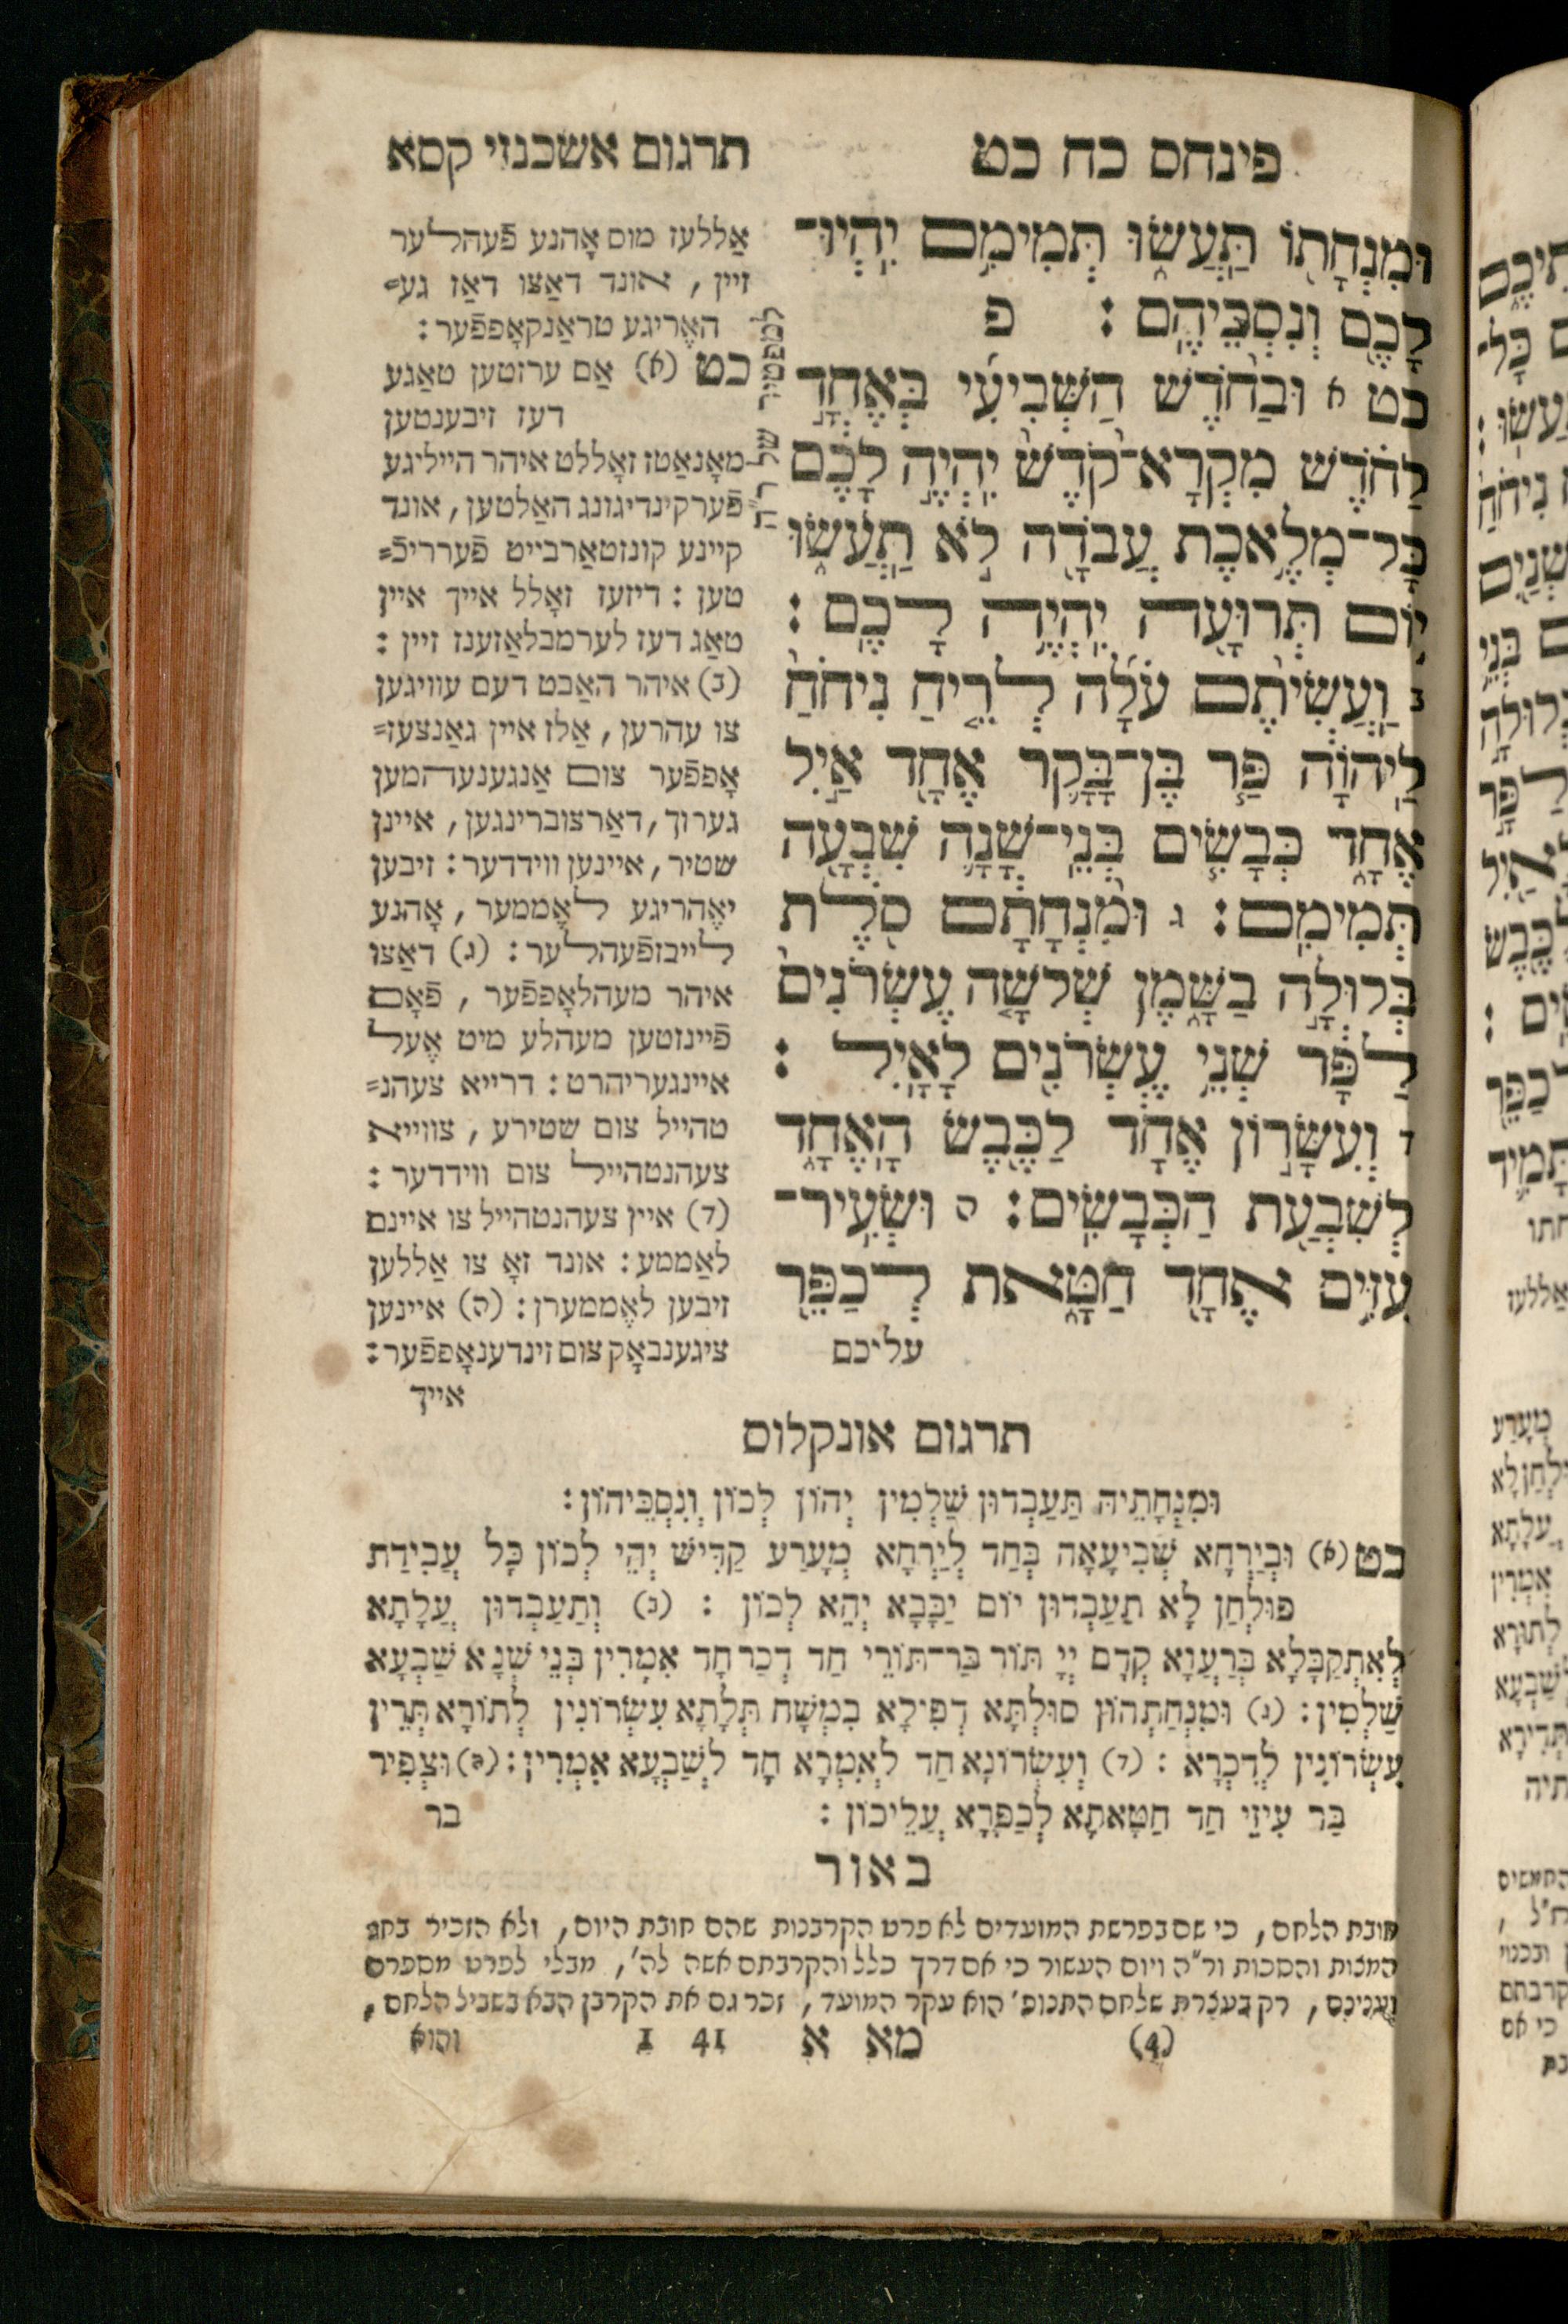 פינחס כח כט
תרגום אשכנזי קסא
וּמִנְחָת֖וֹ תַּֽעֲשׂ֑וּ תְּמִימִ֥ם יִֽהְיוּ־
לָכֶ֖ם וְנִסְכֵּיהֶֽם׃ פ
כט א וּבַחֹ֨דֶשׁ הַשְּׁבִיעִ֜י בְּאֶחָ֣ד
לַחֹ֗דֶשׁ מִֽקְרָא־קֹ֨דֶשׁ֙ יִֽהְיֶ֣ה לָכֶ֔ם
כָּל־מְלֶ֥אכֶת עֲבֹדָ֖ה לֹ֣א תַֽעֲשׂ֑וּ
י֥וֹם תְּרוּעָ֖ה יִֽהְיֶ֥ה לָכֶֽם׃
ב וַֽעֲשִׂיתֶ֨ם עֹלָ֜ה לְרֵ֤יחַ נִיחֹ֨חַ֙
לַֽיהוָֹ֔ה פַּ֧ר בֶּן־בָּקָ֛ר אֶחָ֖ד אַ֣יִל
אֶחָ֑ד כְּבָשִׂ֧ים בְּנֵֽי־שָׁנָ֛ה שִׁבְעָ֖ה
תְּמִימִֽם׃ ג וּמִ֨נְחָתָ֔ם סֹ֖לֶת
בְּלוּלָ֣ה בַשָּׁ֑מֶן שְׁלֹשָׁ֤ה עֶשְׂרֹנִים֙
לַפָּ֔ר שְׁנֵ֥י עֶשְׂרֹנִ֖ים לָאָֽיִל׃
ד וְעִשָּׂר֣וֹן אֶחָ֔ד לַכֶּ֖בֶשׂ הָֽאֶחָ֑ד
לְשִׁבְעַ֖ת הַכְּבָשִֽׂים׃ ה וּשְׂעִֽיר־
עִזִּ֥ים אֶחָ֖ד חַטָּ֑את לְכַפֵּ֖ר
עליכם
למפטיר של ר"ה
אַללעז מוס אָהנע פֿעהלער
זיין, אונד דאַצו דאַז גע=
האֶריגע טראַנקאָפפֿער:
כט (א) אַם ערזטען טאַגע
דעז זיבענטען
מאָנאַטז זאָללט איהר הייליגע
פֿערקינדיגונג האַלטען, אונד
קיינע קונזטאַרבייט פֿערריכֿ=
טען: דיזעז זאָלל אייך איין
טאַג דעז לערמבלאַזענז זיין:
(ב) איהר האַבט דעם עוויגען
צו עהרען, אַלז איין גאַנצעז=
אָפפֿער צום אַנגענעהמען
גערוך, דאַרצוברינגען, איינן
שטיר, איינען ווידדער: זיבען
יאֶהריגע לאֶממער, אָהנע
לייבזפֿעהלער: (ג) דאַצו
איהר מעהלאָפפֿער, פֿאָם
פֿיינזטען מעהלע מיט אֶעל
איינגעריהרט: דרייא צעהנ=
טהייל צום שטירע, צווייא
צעהנטהייל צום ווידדער:
(ד) איין צעהנטהייל צו איינם
לאַממע: אונד זאָ צו אַללען
זיבען לאֶממערן: (ה) איינען
ציגענבאָק צום זינדענאָפפֿער:
אייך
תרגום אונקלוס
וּמִנְחָתֵיהּ תַּעַבְדוּן שַׁלְמִין יְהוֹן לְכוֹן וְנִסְכֵּיהוֹן:
כט (א) וּבְיַרְחָא שְׁבִיעָאָה בְּחַד לְיַרְחָא מְעָרַע קַדִּישׁ יְהֵי לְכוֹן כָּל עֲבִידַת
פּוּלְחַן לָא תַעַבְדוּן יוֹם יַבָּבָא יְהֵא לְכוֹן : (ב) וְתַעַבְדוּן עֲלָתָא
לְאִתְקַבָּלָא בְּרַעֲוָא קֳדָם יְיָ תּוֹר בַּר־תּוֹרֵי חַד דְּכַר חָד אִמְּרִין בְּנֵי שְׁנָא שַׁבְעָא
שַׁלְמִין: (ג) וּמִנְחַתְהוֹן סוּלְתָּא דְפִילָא בִמְשָׁח תְּלָתָא עִשְׂרוֹנִין לְתוֹרָא תְּרֵין
עִשְׂרוֹנִין לְדִכְרָא : (ד) וְעִשְׂרוֹנָא חַד לְאִמְּרָא חָד לְשַׁבְעָא אִמְּרִין: (ה) וּצְפִיר
בַּר עִיזֵי חַד חַטָּאתָא לְכַפָּרָא עֲלֵיכוֹן :
בר
באור
חובת הלחם, כי שם בפרשת המועדים לא פרט הקרבנות שהם חובת היום, ולא הזכיר בחג
המצות והסכות ור"ה ויום העשור כי אם דרך כלל והקרבתם אשה לה', מבלי לפרט מספרם
וענינם, רק בעצרת שלחם התנופ' הוא עקר המועד, זכר גם את הקרבן הבא בשביל הלחם,
(4) מא א 41 1 והוא